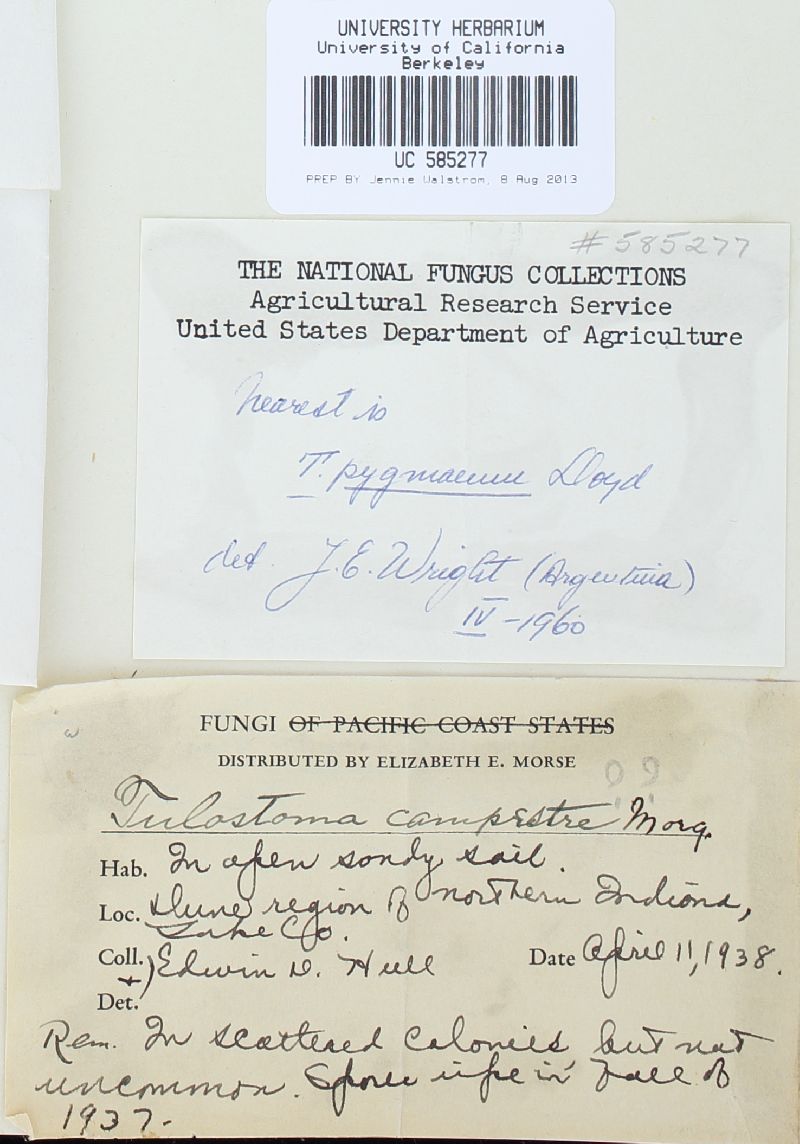 UNIVERSITY HERBARIUM
University of California
Berkeley
UC 585277
PREP BY Jennie Walstrom, 8 Aug 2013
#585277
THE NATIONAL FUNGUS COLLECTIONS
Agricultural Research Service
United States Department of Agriculture
Nearest is
T. pygmaeum Lloyd
det. J. E. Wright (Argentina)
IV-1960
FUNGI OF PACIFIC COAST STATES
DISTRIBUTED BY ELIZABETH E. MORSE
??
Tulostoma campestre Morg.
Hab. In open sandy soil.
Loc. Dune region of northern Indiana,
Lake Co.
Coll. Edwin D. Hull Date April 11, 1938.
+
Det.
Rem. In scattered colonies but not
uncommon. Spores ripe in fall of
1937-